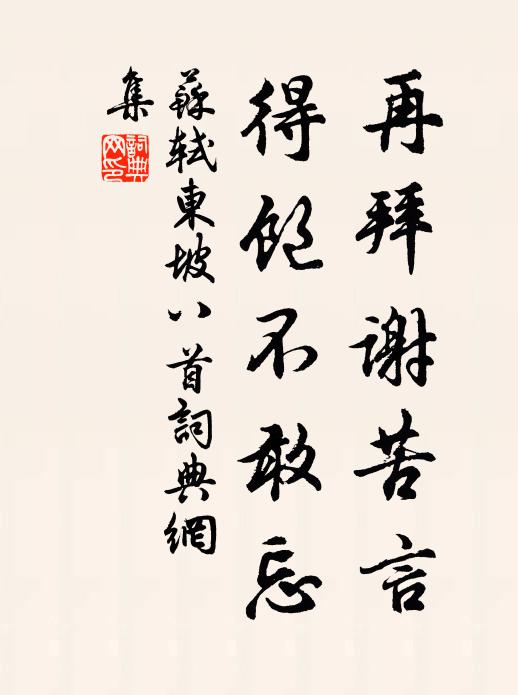 再拜謝苦言
得飽不敢忘
蘇軾東坡八首詞典網
集
詞典
网印